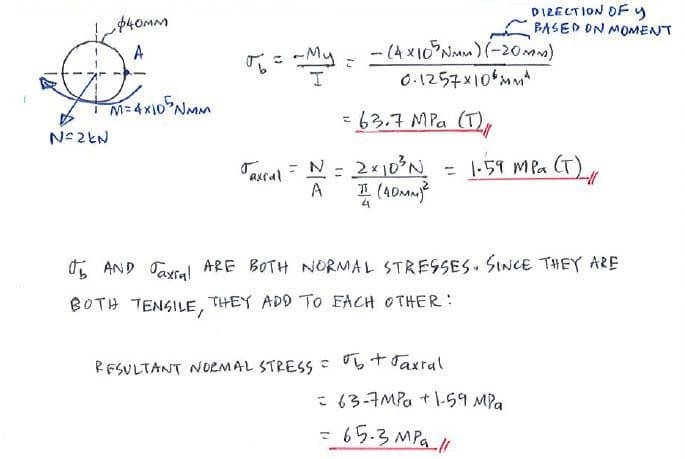 DIRECTION OF y
BASED ON MOMENT
ϕ40MM
A
M=4x10⁵NMM
N=2kN
σb = -My/I = -(4x10⁵NMM)(-20MM)/0.1257x10⁶MM⁴
= 63.7 MPa (T)
σaxial = N/A = 2x10³N/(π/4 (40MM)²) = 1.59 MPa (T)
σb AND σaxial ARE BOTH NORMAL STRESSES. SINCE THEY ARE
BOTH TENSILE, THEY ADD TO EACH OTHER:
RESULTANT NORMAL STRESS = σb + σaxial
= 63.7MPa + 1.59 MPa
= 65.3 MPa